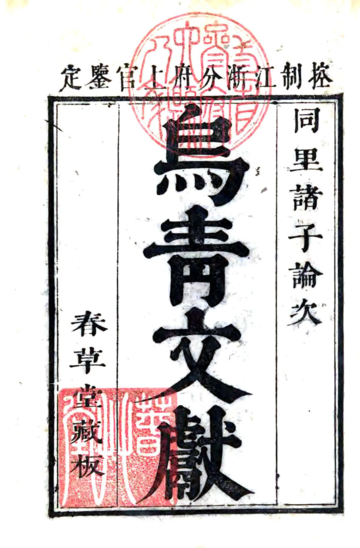 㨿制江浙分府上官鑒定
同里諸子論次
烏青文獻
春草堂藏板